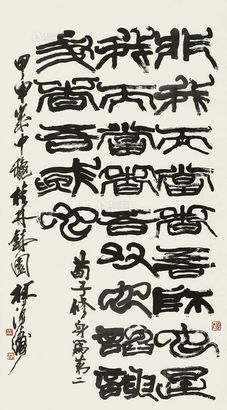 非我而當者吾師也是
我而當者吾友也諂諛
我者吾賊也
荀子修身篇第二
甲申歲中穐